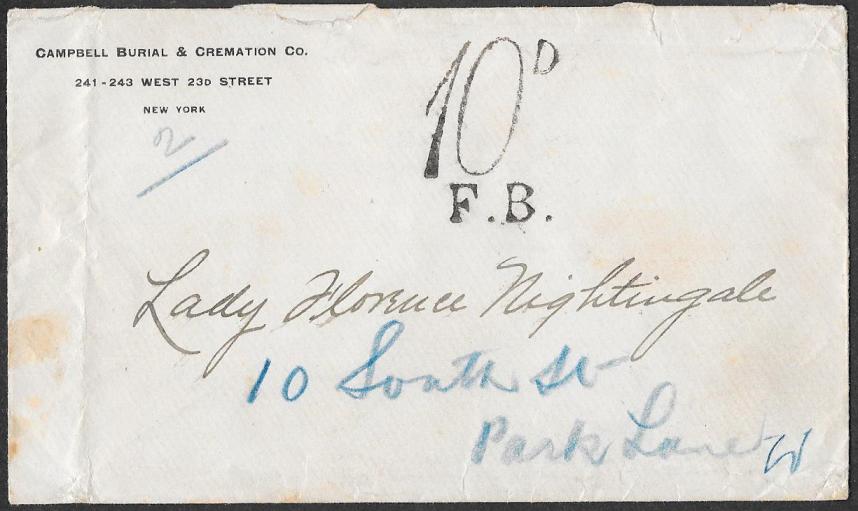 CAMPBELL BURIAL & CREMATION CO.
241-243 WEST 23D STREET
NEW YORK
2/
10D
F.B.
Lady Florence Nightingale
10 South St
Park Lane W